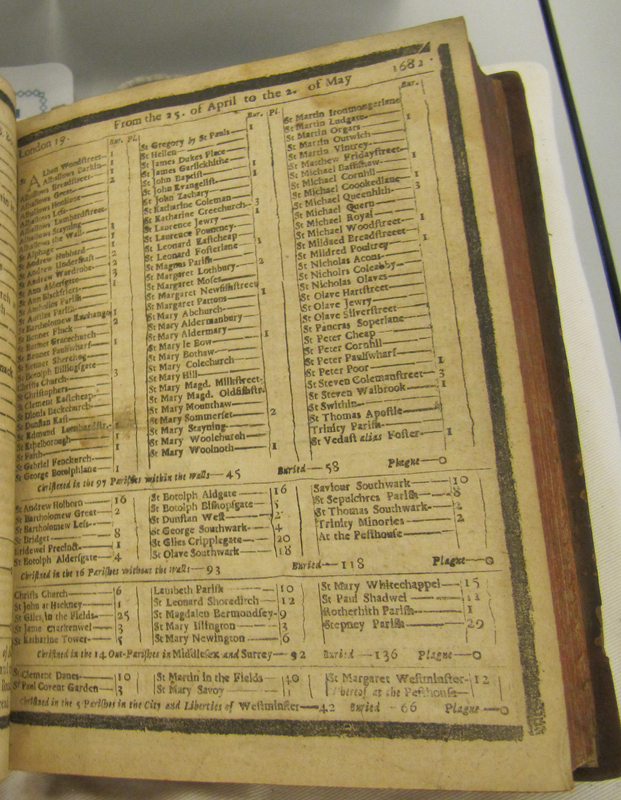 London 19. From the 25. of April to the 2. of May 1682.
Bur. Pl.
St Alban Woodstreet 1
Alhallows Barkin 1
Alhallows Breadstreet 2
Alhallows Great
Alhallows Honilane
Alhallows Less
Alhallows Lumbardstreet
Alhallows Stayning
Alhallows the Wall
St Alphage
St Andrew Hubbard
St Andrew Undershaft 2
St Andrew Wardrobe 3
St Ann Aldersgate 1
St Ann Blackfriers
St Antholins Parish
St Austins Parish
St Bartholomew Exchange 1
St Bennet Finck
St Bennet Gracechurch
St Bennet Paulswharf
St Bennet Sherehog
St Botolph Billingsgate
Christs Church 3
St Christophers
St Clement Eastcheap
St Dionis Backchurch
St Dunstan East
St Edmund Lumbardstr.
St Ethelborough
St Faith
St Gabriel Fenchurch
St George Botolphlane 1
Bur. Pl.
St Gregory by St Pauls 1
St Hellen
St James Dukes Place
St James Garlickhithe 1
St John Baptist 1
St John Evangelist
St John Zachary
St Katharine Coleman
St Katharine Creechurch 3
St Laurence Jewry 1
St Laurence Pountney
St Leonard Eastcheap
St Leonard Fosterlane 1
St Magnus Parish
St Margaret Lothbury 2
St Margaret Moses
St Margaret Newfishstreet
St Margaret Pattons 1
St Mary Abchurch
St Mary Aldermanbury
St Mary Aldermary
St Mary le Bow 1
St Mary Bothaw
St Mary Colechurch
St Mary Hill
St Mary Magd. Milkstreet
St Mary Magd. Oldfishstr.
St Mary Mounthaw
St Mary Sommerset 2
St Mary Stayning
St Mary Woolchurch
St Mary Woolnoth 1
Bur.
St Martin Ironmongerlane
St Martin Ludgate 1
St Martin Orgars
St Martin Outwich
St Martin Vintrey
St Matthew Fridaystreet 1
St Michael Bassishaw
St Michael Cornhil
St Michael Crookedlane 1
St Michael Queenhith 3
St Michael Quern
St Michael Royal
St Michael Woodstreet 1
St Mildred Breadstreet
St Mildred Poultrey 1
St Nicholas Acons
St Nicholas Coleabby
St Nicholas Olaves
St Olave Hartstreet
St Olave Jewry
St Olave Silverstreet
St Pancras Soperlane
St Peter Cheap
St Peter Cornhil
St Peter Paulswharf
St Peter Poor 1
St Steven Colemanstreet 3
St Steven Walbrook 1
St Swithin
St Thomas Apostle
Trinity Parish
St Vedast alias Foster 1
Christned in the 97 Parishes within the Walls 45 Buried 58 Plague 0
St Andrew Holborn 16
St Bartholomew Great 2
St Bartholomew Less
St Bridget 8
Bridewel Precinct 1
St Botolph Aldersgate 4
St Botolph Aldgate 16
St Botolph Bishopsgate
St Dunstan West 2
St George Southwark 4
St Giles Cripplegate 20
St Olave Southwark 18
Saviour Southwark 10
St Sepulchres Parish 8
St Thomas Southwark 2
Trinity Minories 2
At the Pesthouse
Christned in the 16 Parishes without the Walls 93 Buried 118 Plague 0
Christs Church 6
St John at Hackney 1
St Giles in the Fields 25
St Jame Clarkenwel 3
St Katharine Tower 5
Lambeth Parish 10
St Leonard Shoreditch 12
St Magdalen Bermondsey 9
St Mary Islington 3
St Mary Newington 6
St Mary Whitechappel 15
St Paul Shadwel 11
Rotherhith Parish 1
Stepney Parish 29
Christned in the 14 Out-Parishes in Middlesex and Surrey 92 Buried 136 Plague 0
St Clement Danes 10
St Paul Covent Garden 3
St Martin in the Fields 40
St Mary Savoy
St Margaret Westminster 12
Whereof at the Pesthouse
Christned in the 5 Parishes in the City and Liberties of Westminster 42 Buried 66 Plague 0